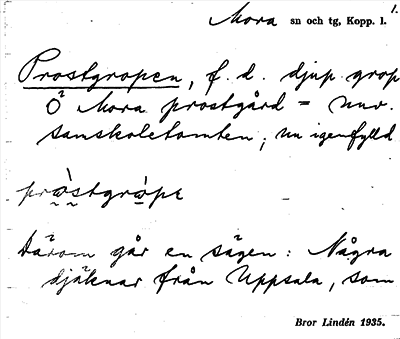 1.
Mora sn och tg, Kopp. l.
Prostgropen, f. d. djup grop
Ö Mora prostgård = nuv.
sanskoletomten; nu igenfylld
pròstgròpe
Därom går en sägen: Några
djäknar från Uppsala, som
Bror Lindén 1935.